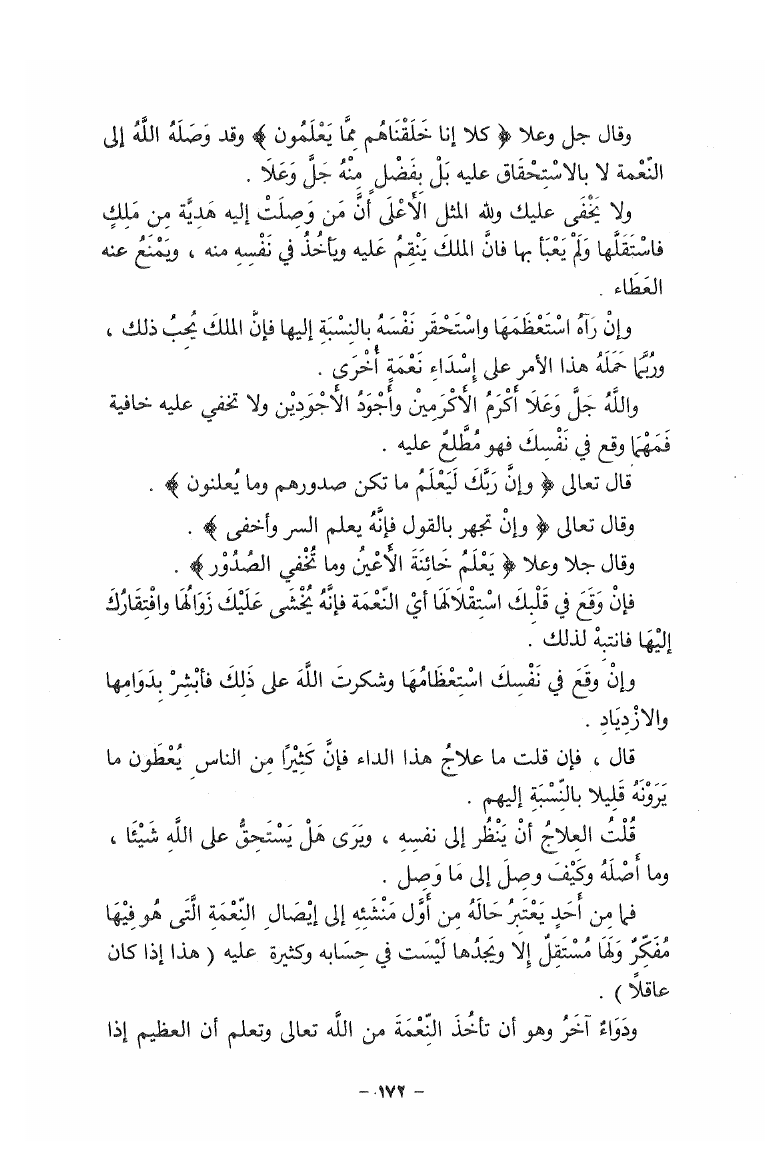 وقال جل وعلا ﴿ كلا إنا خَلَقْنَاهُم مِمَّا يَعْلَمُون ﴾ وقد وَصَلَهُ اللَّهُ إلى
النّعْمة لا بالاسْتِحْقَاق عليه بَلْ بِفَضْلٍ مِنْهُ جَلَّ وَعَلَا .
ولا يَخْفَى عليك ولله المثل الأَعْلَى أنَّ مَن وَصِلَتْ إليه هَدِيَّة مِن مَلِكٍ
فاسْتَقَلَّها وَلَمْ يَعْبَأ بها فانَّ الملكَ يَنْقِمُ عَليه ويَأخُذُ في نَفْسِه منه ، ويَمْنَعُ عنه
العَطَاء .
وإنْ رَآهُ اسْتَعْظَمَهَا واسْتَحْقَر نَفْسَهُ بالنِسْبَةِ إليها فإنَّ الملكَ يُحِبُ ذلك ،
ورُبَّمَا حَمَلَهُ هذا الأمر على إِسْدَاءِ نَعْمَةٍ أُخْرَى .
واللَّهُ جَلَّ وَعَلَا أَكْرَمُ الأَكْرَمِيْن وأَجْوَدُ الأَجْوَدِيْن ولا تخفي عليه خافية
فَمَهْمَا وقع في نَفْسِكَ فهو مُطَّلِعٌ عليه .
قال تعالى ﴿ وإنَّ رَبَّكَ لَيَعْلَمُ ما تكن صدورهم وما يُعلنون ﴾ .
وقال تعالى ﴿ وإنْ تجهر بالقول فإنَّهُ يعلم السر وأخفى ﴾ .
وقال جلا وعلا ﴿ يَعْلَمُ خَائِنَةَ الأَعْيُنُ وما تُخْفي الصُدُوْر ﴾ .
فإنْ وَقَعَ في قَلْبِكَ اسْتِقْلَالَهَا أيْ النّعْمَة فإنَّهُ يُخْشَى عَلَيْكَ زَوَالُهَا وافْتِقَارُكَ
إليْهَا فانتبِهْ لذلك .
وإنْ وقَعَ في نَفْسِكَ اسْتِعْظَامُهَا وشكرتَ اللَّهَ على ذَلِكَ فأبْشِرْ بِدَوَامِها
والازْدِيَادِ .
قال ، فإن قلت ما علاجُ هذا الداء فإنَّ كَثِيْرًا مِن الناس يُعْطَون ما
يَرَوْنَهُ قَلِيلا بالنِّسْبَةِ إليهم .
قُلْتُ العِلاجُ أنْ يَنْظُر إلى نفسِهِ ، ويَرَى هَلْ يَسْتَحِقُّ على اللَّهِ شَيْئًا ،
وما أَصْلَهُ وكَيْفَ وصِلَ إلى مَا وَصِل .
فما مِن أَحَدٍ يَعْتَبِرُ حَالَهُ مِن أَوَّل مَنْشَئِهِ إلى إيْصَالِ النِّعْمَةِ الَّتَى هُو فِيْهَا
مُفَكِّرٌ وَلَهَا مُسْتَقِلٌ إِلا ويَجِدُها لَيْسَت في حِسَابه وكثيرة عليه ( هذا إذا كان
عاقلاً ) .
ودَوَاءٌ آخَرُ وهو أن تأخُذَ النِّعْمَةَ من اللَّه تعالى وتعلم أن العظيم إذا
– ١٧٢ –